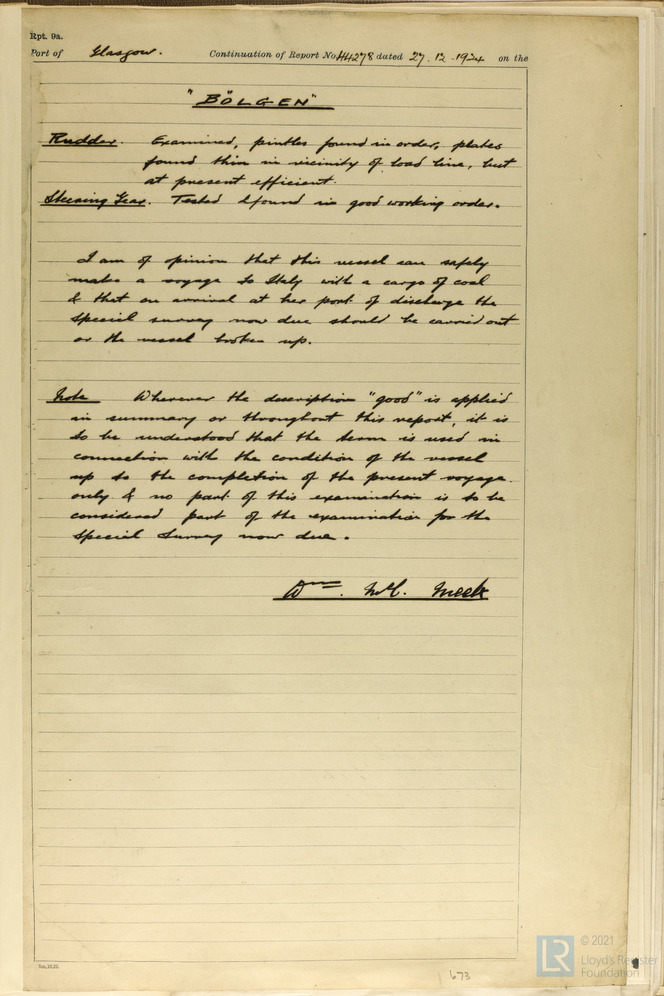 Rpt. 9a.
Port of Glasgow. Continuation of Report No 44278 dated 27.12.1924 on the
"BÖLGEN"
Rudder. Examined, pintles found in order, plates
found thin in vicinity of load line, but
at present efficient.
Steering Gear. Tested & found in good working order.
I am of opinion that this vessel can safely
make a voyage to Italy with a cargo of coal
& that on arrival at her port of discharge the
Special survey now due should be carried out
or the vessel broken up.
Note Wherever the description "good" is applied
in summary or throughout this report, it is
to be understood that the term is used in
connection with the condition of the vessel
up to the completion of the present voyage
only & no part of this examination is to be
considered part of the examination for the
Special Survey now due.
Wm. McC. Meek
673
LR
© 2021
Lloyd's Register
Foundation